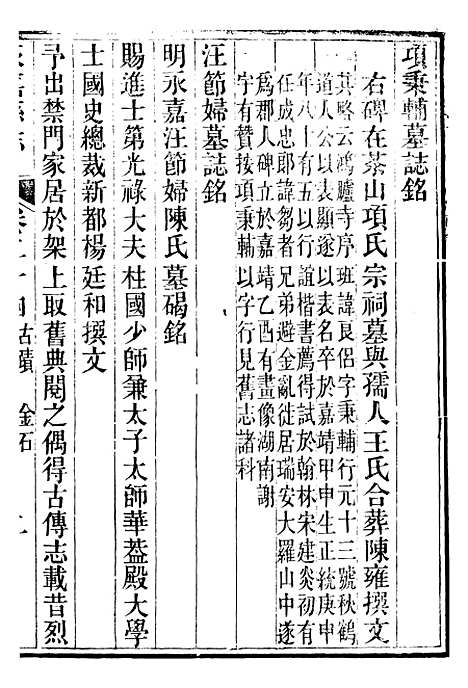 項秉輔墓誌銘
右碑在茶山項氏宗祠墓與孺人王氏合葬陳雍撰文
其略云鴻臚寺序班諱良侶字秉輔行元十三號秋鶴
道人公以表顯遂以表名卒於嘉靖甲申生正統庚申
年八十有五以行誼楷書薦得試於翰林宋建炎初有
任成忠郎諱芻者兄弟避金亂徙居瑞安大羅山中遂
爲郡人碑立於嘉靖乙酉有畫像湖南謝
字有贊按項秉輔以字行見舊志諸科
汪節婦墓誌銘
明永嘉汪節婦陳氏墓碣銘
賜進士第光祿大夫柱國少師兼太子太師華葢殿大學
士國史總裁新都楊廷和撰文
予出禁門家居於架上取舊典閱之偶得古傳志載昔烈
古蹟 金石